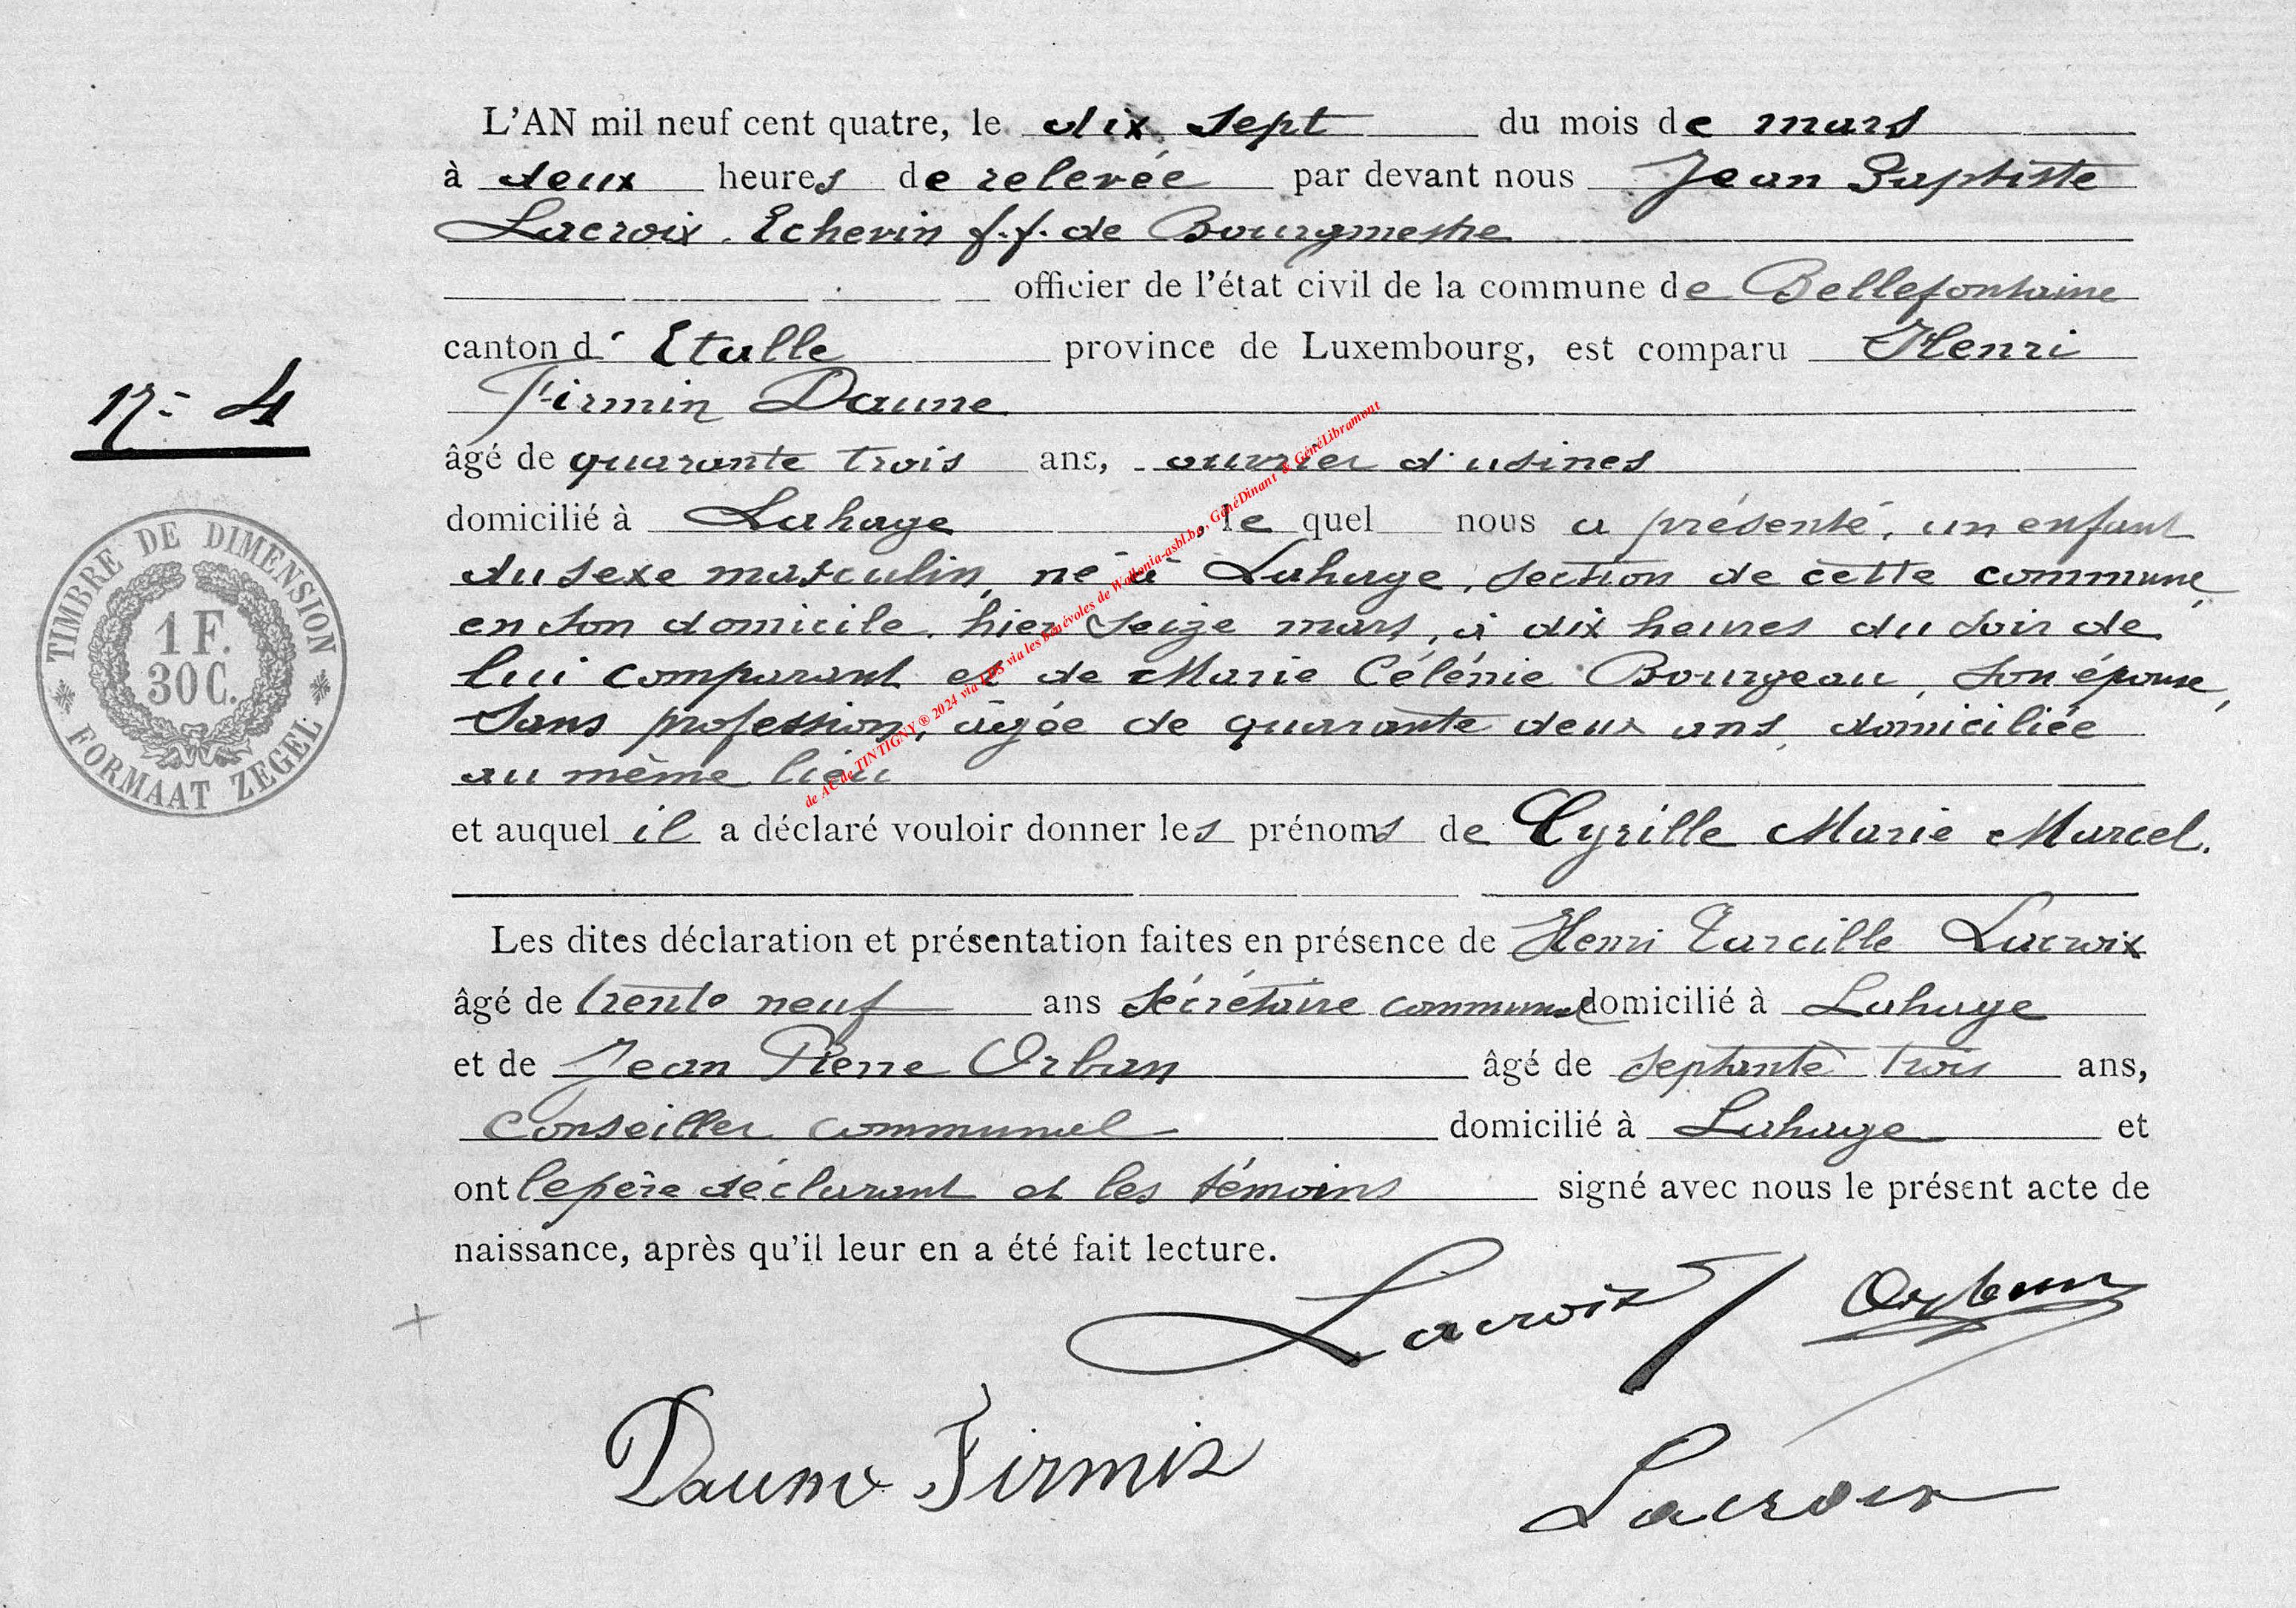 L'AN mil neuf cent quatre, le dix sept du mois de mars
à deux heures de relevée par devant nous Jean Baptiste
Lacroix, Echevin f.f. de Bourgmestre
officier de l'état civil de la commune de Bellefontaine
canton d' Etalle province de Luxembourg, est comparu Henri
Firmin Daune
N° 4
âgé de quarante trois ans, ouvrier d'usines
domicilié à Lahage, le quel nous a présenté, un enfant
du sexe masculin, né à Lahage, section de cette commune,
en son domicile, hier seize mars, à dix heures du soir de
lui comparant et de Marie Célénie Bourgeau, son épouse,
sans profession, âgée de quarante deux ans, domiciliée
au même lieu
et auquel il a déclaré vouloir donner les prénoms de Cyrille Marie Marcel.
Les dites déclaration et présentation faites en présence de Henri Lacroix
âgé de trente neuf ans secrétaire communal domicilié à Lahage
et de Jean Pierre Orban âgé de septante trois ans,
conseiller communal domicilié à Lahage et
ont le père déclarant et les témoins signé avec nous le présent acte de
naissance, après qu'il leur en a été fait lecture.
Lacroix Orban
Daune Firmin
Lacroix
TIMBRE DE DIMENSION
1 F.
30 C.
FORMAAT ZEGEL
de AC de TINTIGNY ® 2024 via LDS via les bénévoles de Wallonia-asbl.be, GénéDinant & GénéLibramont